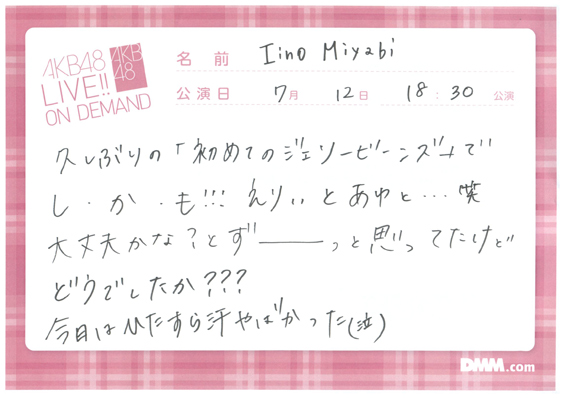 AKB48
LIVE!!
ON DEMAND
AKB
48
名前 Iino Miyabi
公演日 7月 12日 18:30 公演
久しぶりの「初めてのジェリービーンズ」で
し・か・も!!! えりぃとあゆと…笑
大丈夫かな?とずーーーっと思ってたけど
どうでしたか???
今日はひたすら汗やばかった(泣)
DMM.com